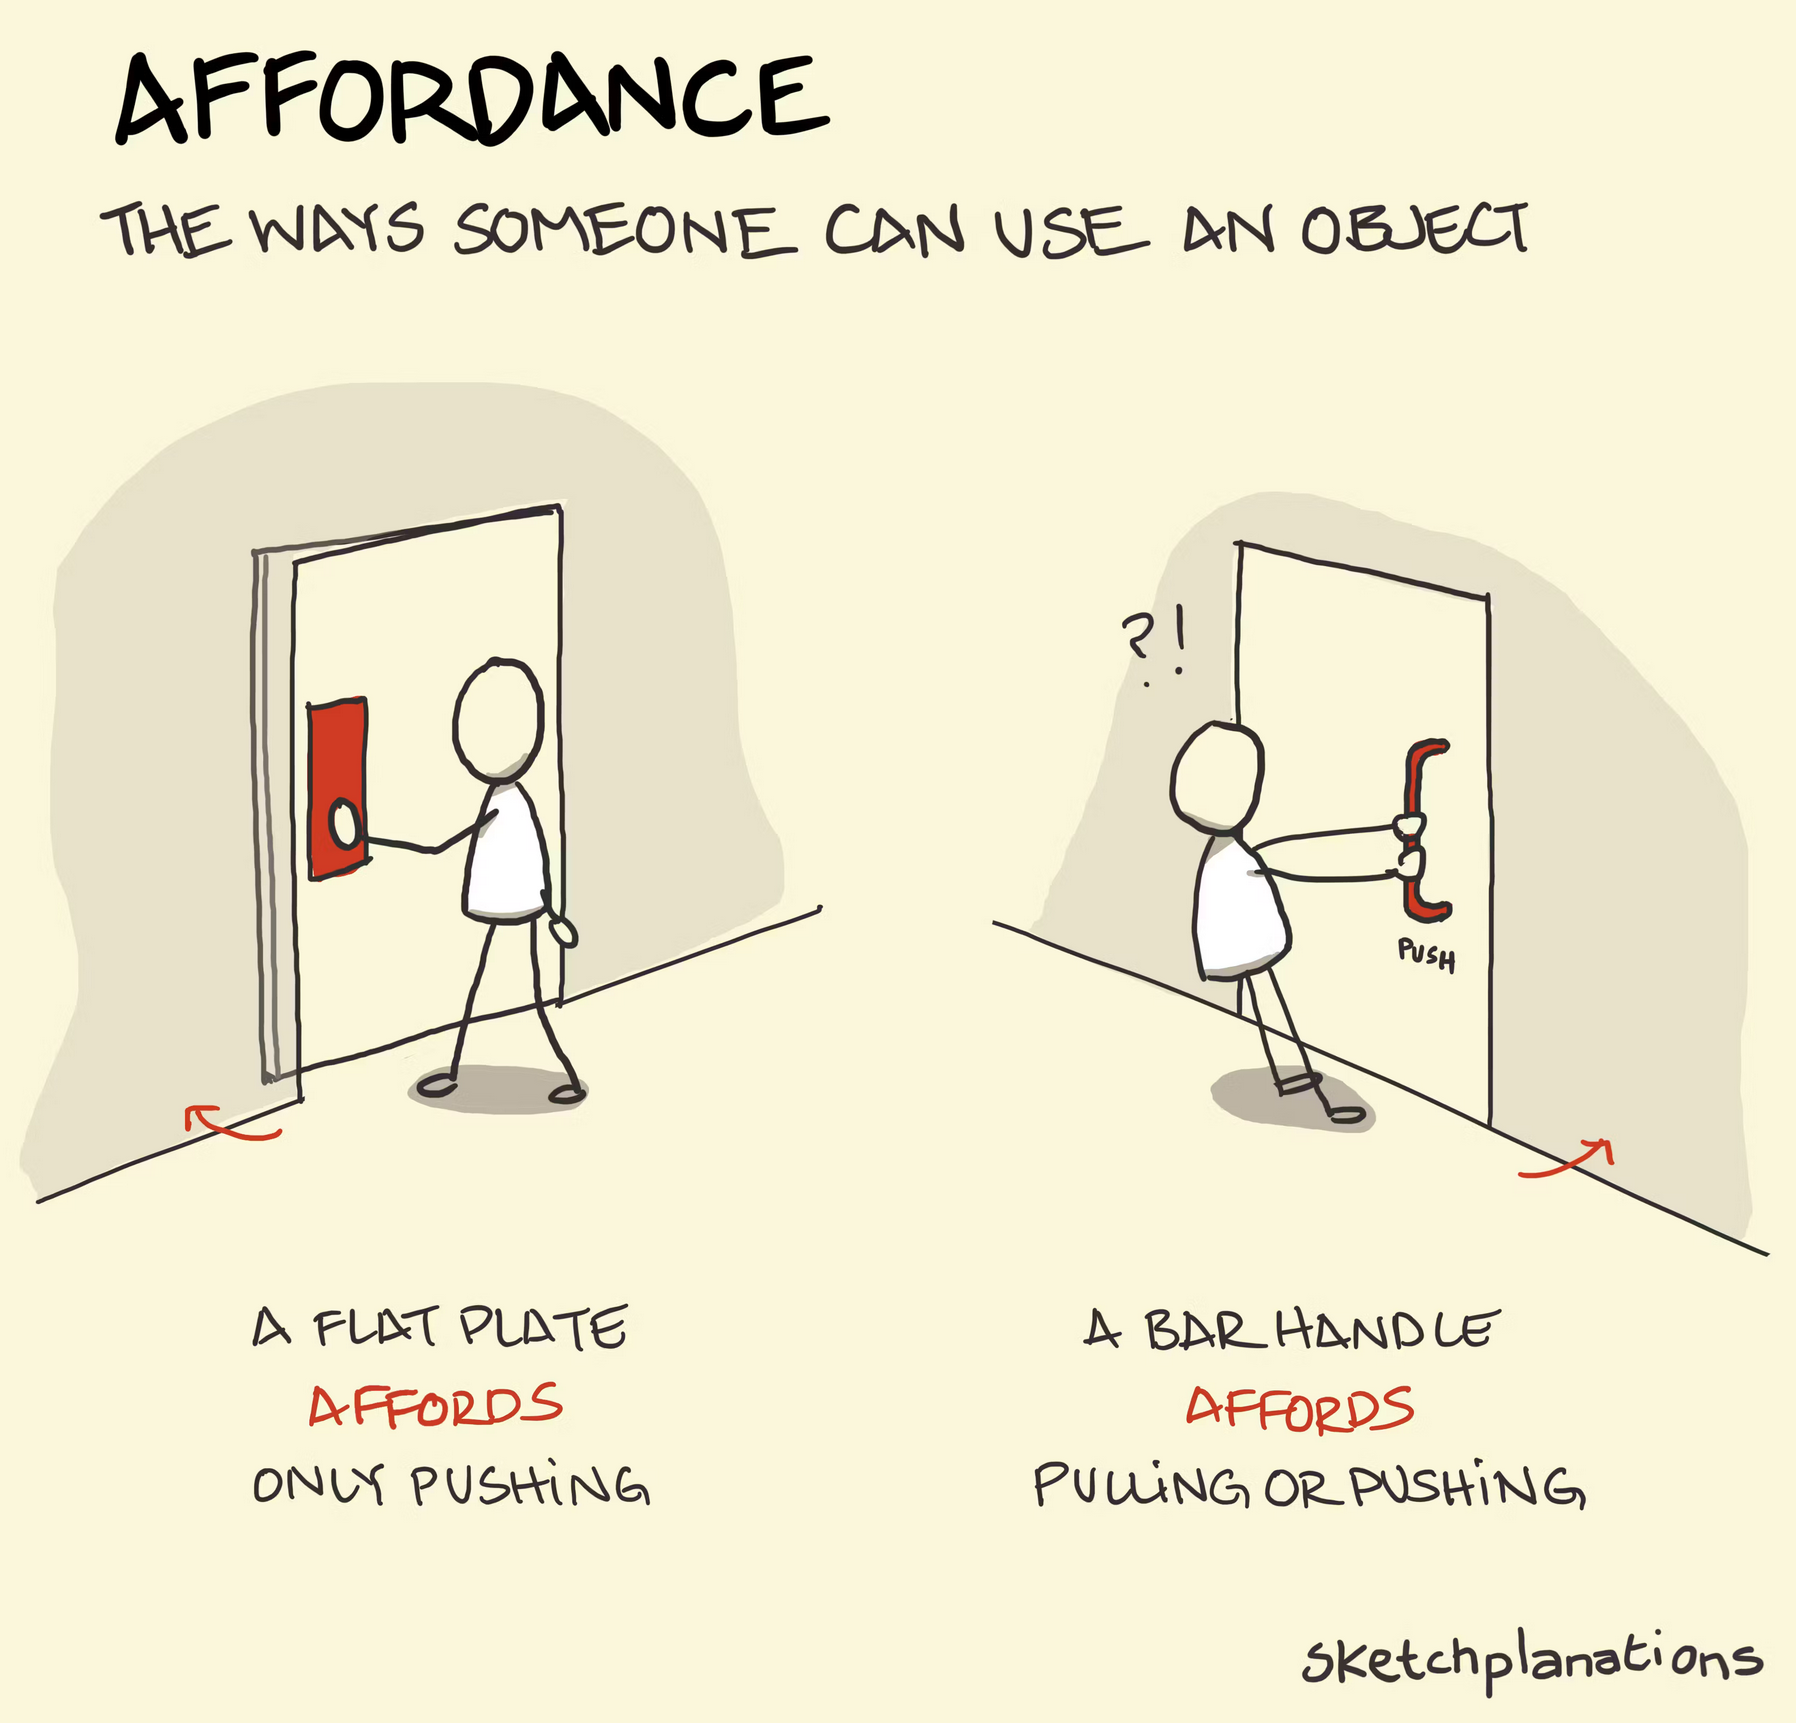 AFFORDANCE
THE WAYS SOMEONE CAN USE AN OBJECT
?!
PUSH
A FLAT PLATE
AFFORDS
ONLY PUSHING
A BAR HANDLE
AFFORDS
PULLING OR PUSHING
sketchplanations